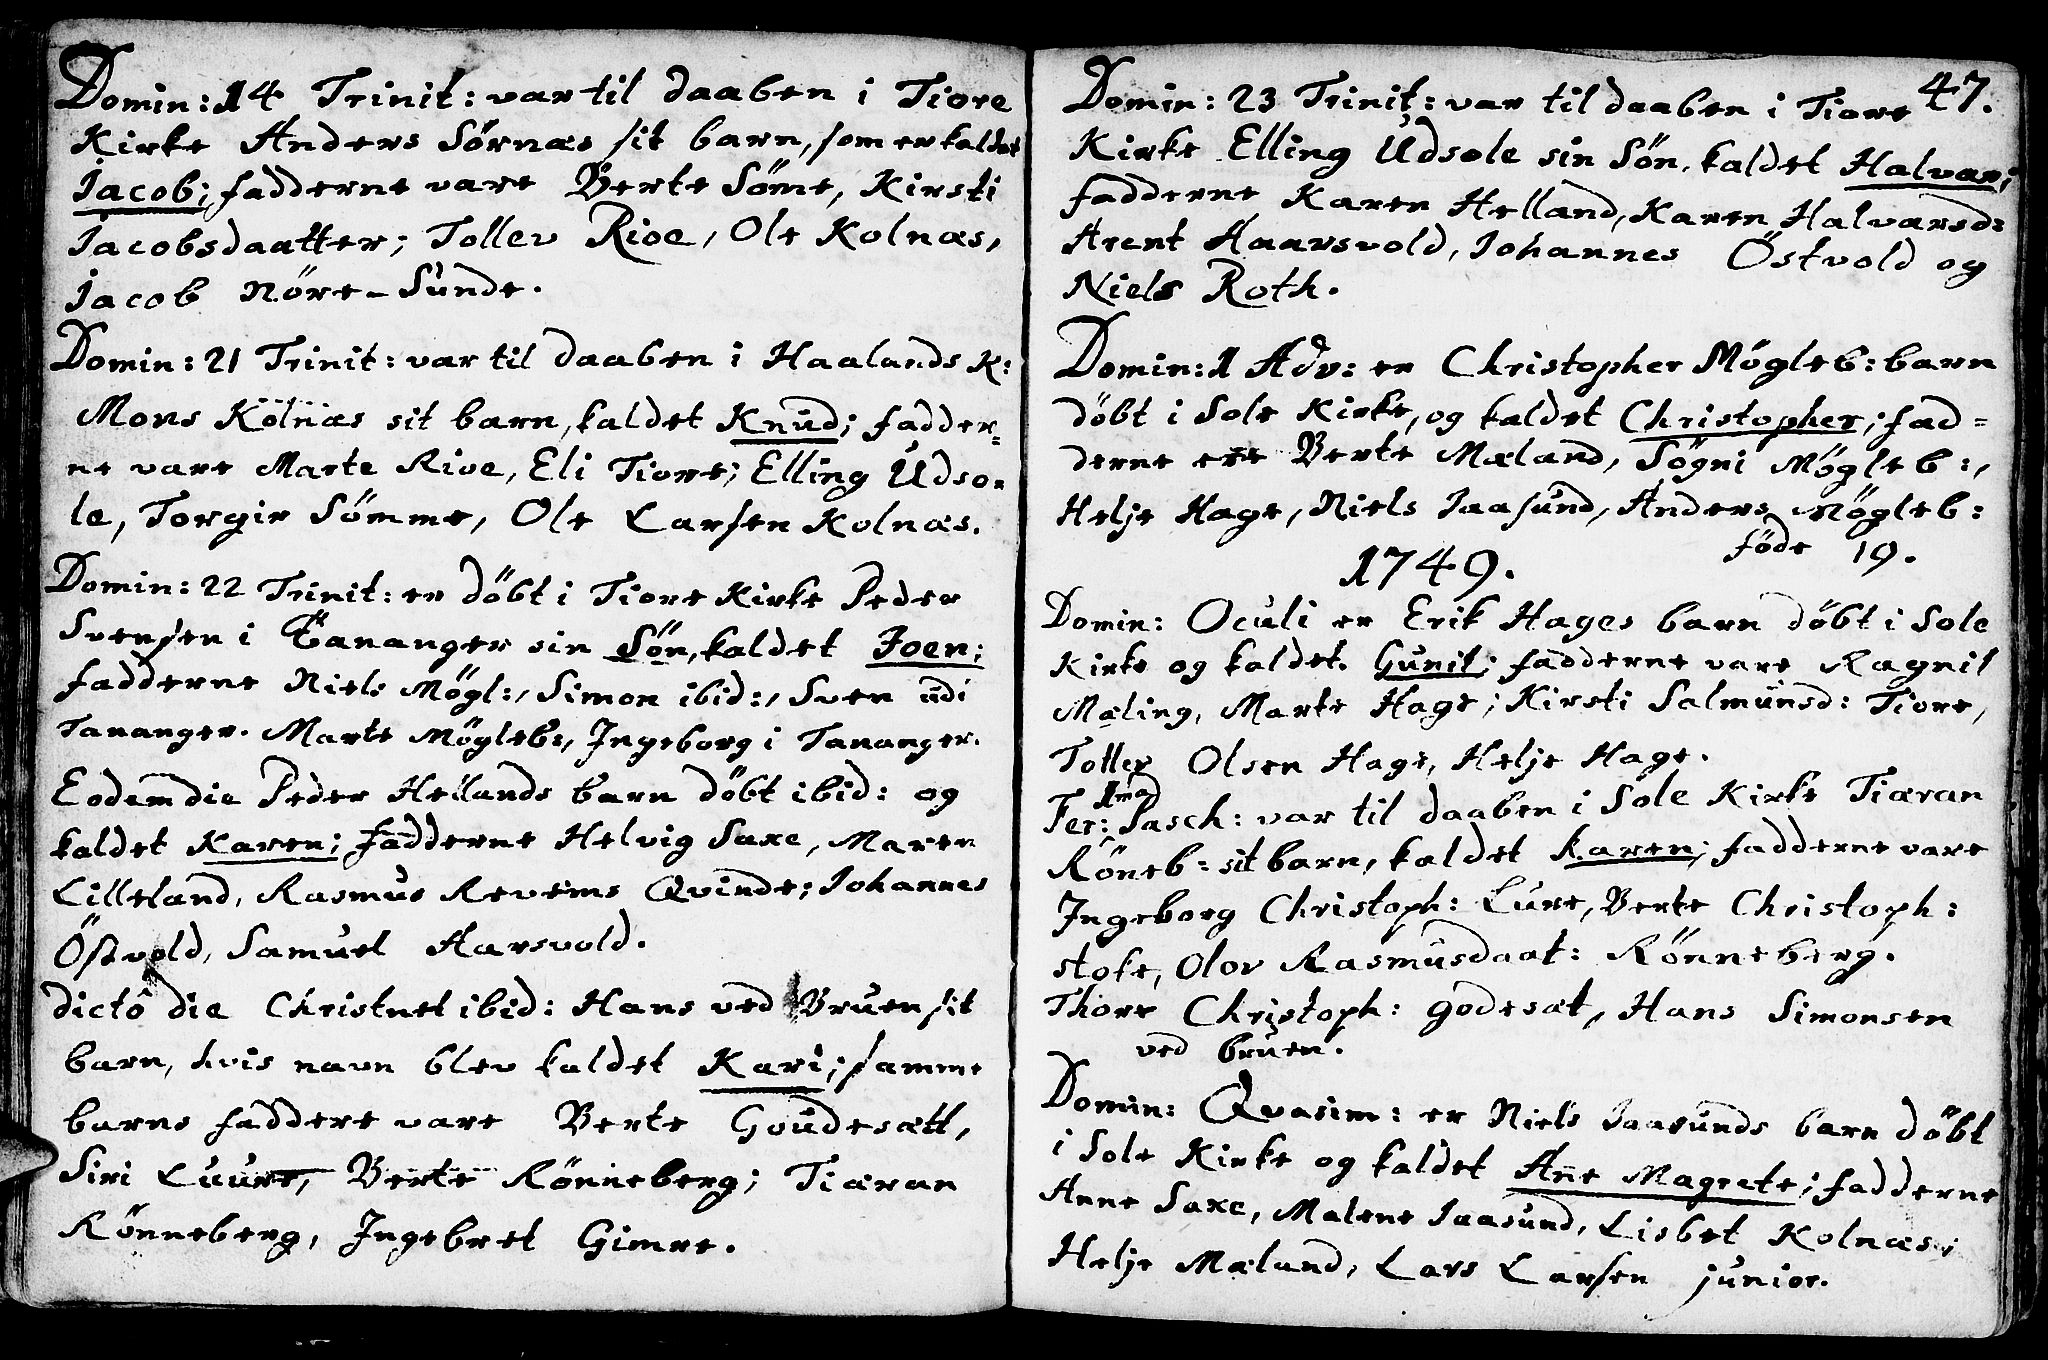 Domin: 14 Trinit: var til daaben i Tiore
Kirke Anders Sörnæs sit barn, som er kaldet
Jacob; fadderne vare Berte Söme, Kirsti
Jacobsdaatter; Tollev Rioe, Ole Kolnæs,
Jacob Nöre-Sunde.
Domin: 21 Trinit: var til daaben i Haalands K:
Mons Kolnæs sit barn, kaldet Knud; fadder=
ne vare Marte Rioe, Eli Tiore; Elling Udso=
le, Torgir Sömme, Ole Larsen Kolnæs.
Domin: 22 Trinit: er döbt i Tiore Kirke Peder
Svensen i Tananger sin Sön, kaldet Joen;
fadderne Niels Mögl:, Simon ibid:, Sven udi
Tananger. Marte Mögleb:, Ingeborg i Tananger.
Eodem die Peder Hellands barn döbt ibid: og
kaldet Karen; fadderne Helvig Saxe, Maren
Lilleland, Rasmus Revems Qvinde; Johannes
Östvold, Samuel Harsvold.
dictô die Christnet ibid: Hans ved Bruen sit
barn, hvis navn blev kaldet Kari; samme
barns faddere vare Berte Goudesætt,
Siri Luure, Berte Rönneberg; Tiæran
Rönneberg, Ingebret Gimre.
47.
Domin: 23 Trinit: var til daaben i Tiore
Kirke Elling Udsole sin Sön, kaldet Halvar;
fadderne Karen Helland, Karen Halvarsd:
Arent Haarsvold, Johannes Östvold og
Niels Roth.
Domin: 1 Adv: er Christopher Mögleb: barn
döbt i Sole Kirke, og kaldet Christopher; fad=
derne ere Berte Mæland, Sögni Mögleb:,
Helje Hage, Niels Jaasund, Anders Mögleb:
föde 19.
1749.
Domin: Oculi er Erik Hages barn döbt i Sole
Kirke og kaldet. Gunil; fadderne vare Ragnil
Mæling, Marte Hage; Kirsti Salmunsd: Tiore,
Tollev Olsen Hage, Helje Hage.
Fer: 1ma Pasch: var til daaben i Sole Kirke Tiæran
Röneb: sit barn, kaldet Karen; fadderne vare
Ingeborg Christoph: Lure, Berte Christoph:
stoke, Olov Rasmusdaat: Rönneberg.
Thore Christoph: godesæt, Hans Simonsen
ved bruen.
Domin: Qvasim: er Niels Jaasunds barn döbt
i Sole Kirke og kaldet Añe Magrete; fadderne
Anne Saxe, Malene Jaasund, Lisbet Kolnæs;
Helje Mæland, Lars Larsen junior.